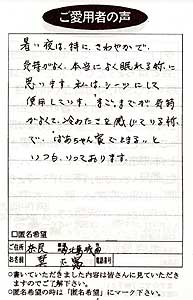 ご愛用者の声
暑い夜は、特に、さわやかで、
気持がよく、本当によく眠れる様に
思います。私は、シーツにして
使用しています。すごまでが気持
がよくて、冷めたさを感じている様
で、「ばあちゃん家できると」
いつも、いっております。
□匿名希望
ご住所 奈良
お名前
電話番号
○書いていただきました内容は皆さんに見ていただき
ますのでご了解下さい。
○匿名希望の時は「匿名希望」にマーク下さい。